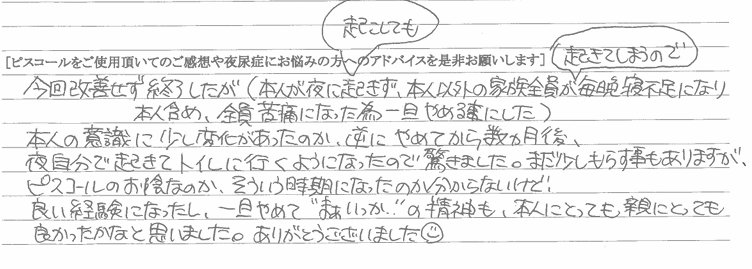 起こしても
[ピスコールをご使用頂いてのご感想や夜尿症にお悩みの方へのアドバイスを是非お願いします]
起きてしまうので
今回改善せず終了したが(本人が夜に起きず、本人以外の家族全員が毎晩寝不足になり
本人含め、全員苦痛になった為一旦やめる事にした)
本人の意識に少し変化があったのか、逆にやめてから数カ月後、
夜自分で起きてトイレに行くようになったので驚きました。まだ少しもらす事もありますが、
ピスコールのお陰なのか、そういう時期になったのか分からないけど、
良い経験になったし、一旦やめて“まぁいっか..”の精神も、本人にとっても親にとっても
良かったかなと思いました。ありがとうございました☺